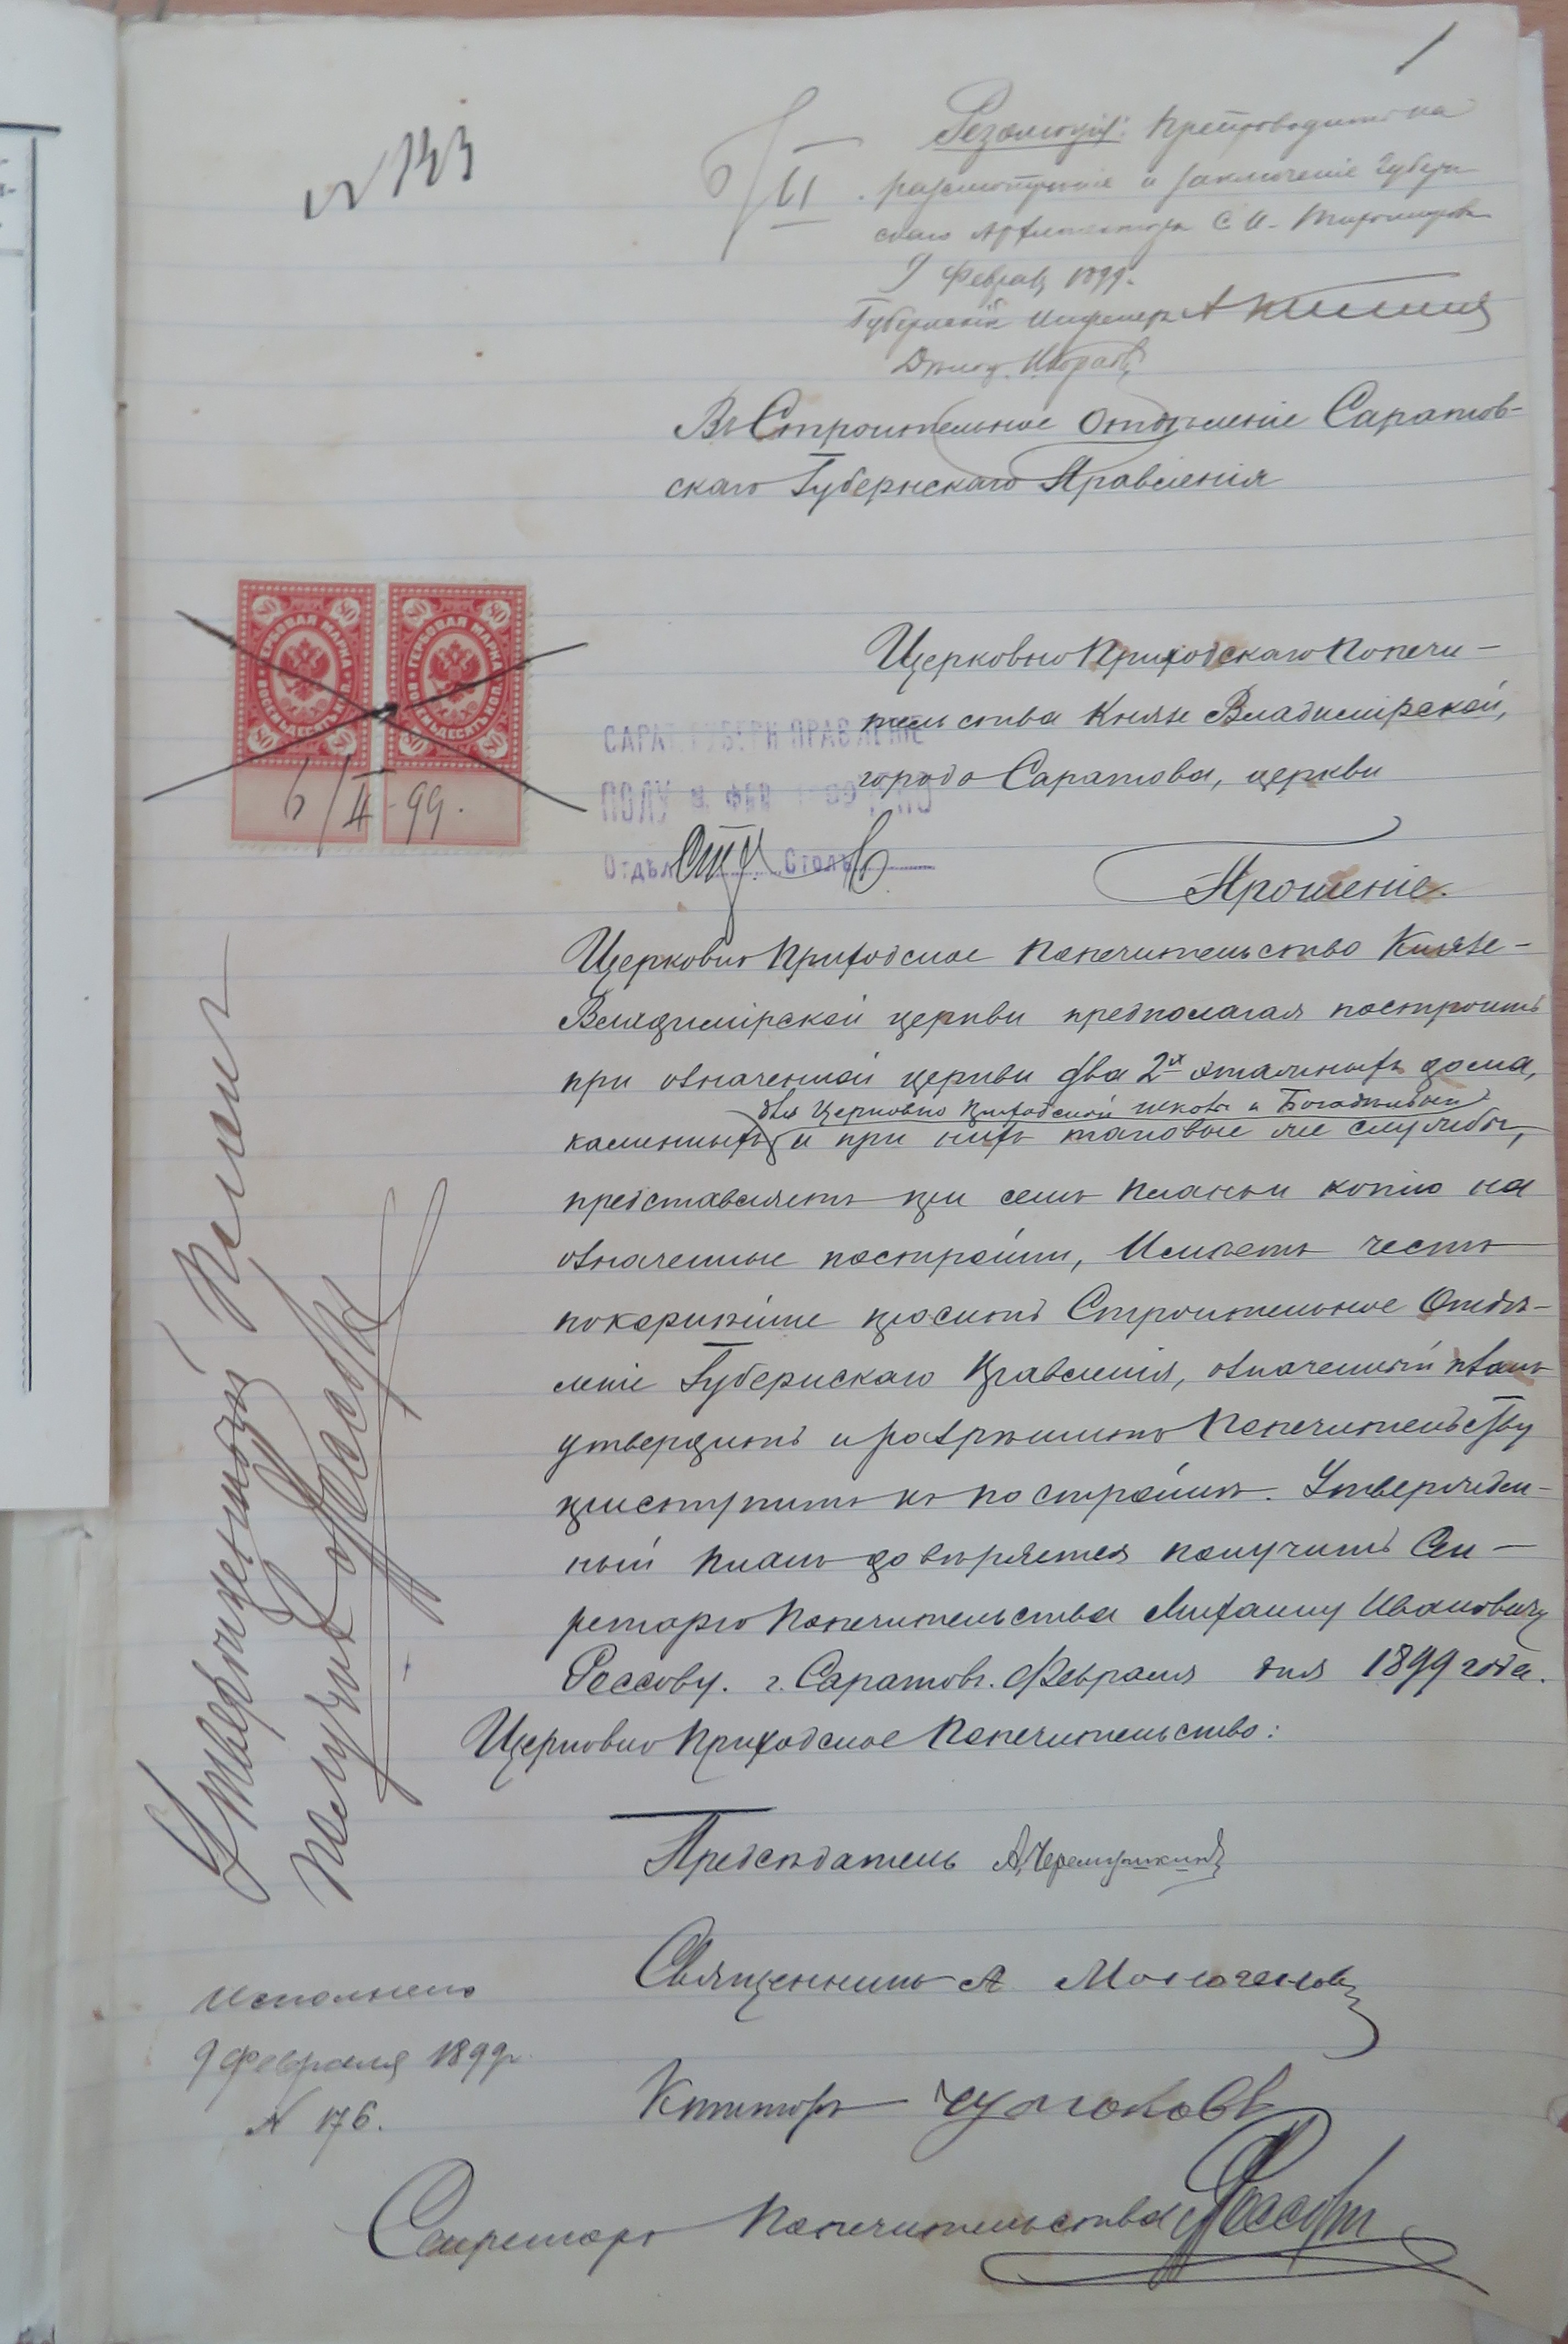 1
№ 133
6/II
Резолюція: Препроводить на
разсмотрѣніе и заключеніе Губерн
скаго Архитектора С. И. Тихомирова
9 Февраля 1899.
Губернскій Инженеръ А
Дѣлоп.
Въ Строительное Отдѣленіе Саратов-
скаго Губернскаго Правленія
Церковно Приходскаго Попечи-
тельства Князе Владимірской,
города Саратова, церкви
ГЕРБОВАЯ МАРКА ВОСЕМЬДЕСЯТЪ КОП. 80
ГЕРБОВАЯ МАРКА ВОСЕМЬДЕСЯТЪ КОП. 80
6/II-99.
САРАТ. ГУБЕРН ПРАВЛЕНІЕ
ПОЛУ ФЕВ
Отдѣл. Стр. Столъ
Прошеніе.
Церковно Приходское Попечительство Князе-
Владимірской церкви предполагая построить
при означенной церкви два 2х этажныхъ дома,
для Церковно приходской школы и Богадѣльни
каменныхъ и при нихъ таковые же службы,
представляетъ при семъ планъ и копію на
означенные постройки, Имѣетъ честь
покорнѣйше просить Строительное Отдѣ-
леніе Губернскаго Правленія, означенный планъ
утвердить и разрѣшить Попечительству
приступить къ постройкѣ. Утвержден-
ный планъ довѣряется получить Сек-
ретарю Попечительства Михаилу Ивановичу
Россову. г. Саратовъ. Февраля дня 1899 года.
Церковно Приходское Попечительство:
Предсѣдатель А. Черемушкинъ
Священникъ А. Молоченовъ
Ктиторъ Чумоковъ
Секретарь Попечительства Россовъ
Утвержденный Планъ
получилъ Россовъ
Исполнено
9 Февраля 1899 г.
№ 176.